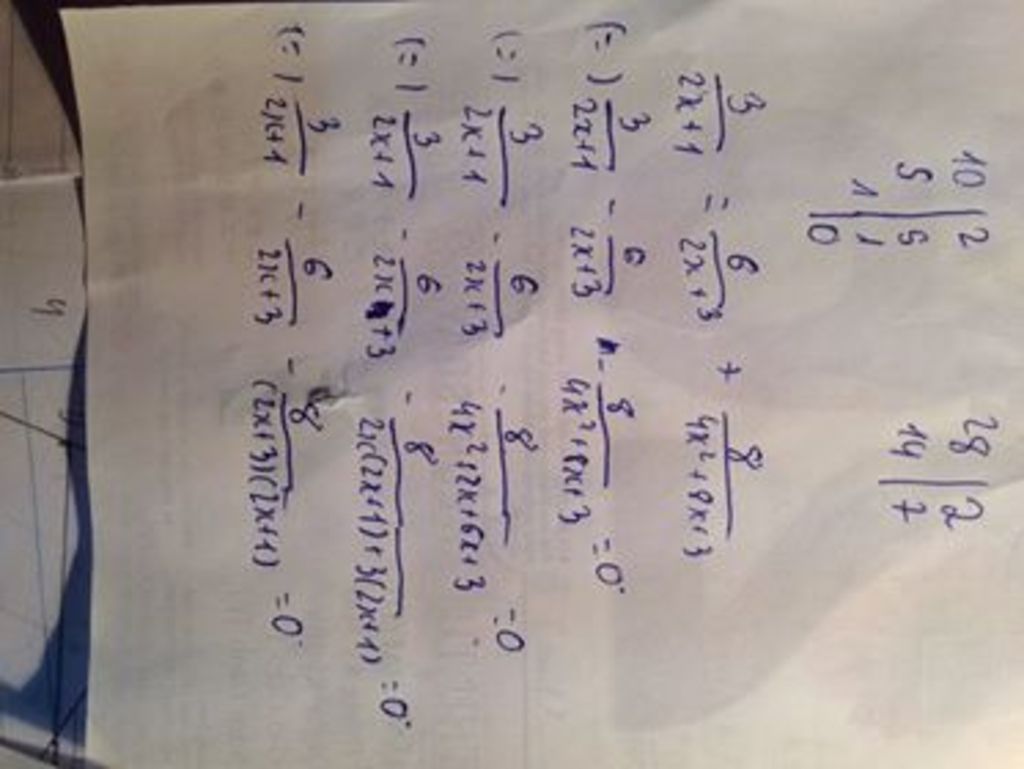 10 | 2    28 | 2
5 | 5    14 | 7
1 | 1
| 0
3/(2x+1) = 6/(2x+3) + 8/(4x²+8x+3)
(=) 3/(2x+1) - 6/(2x+3) - 8/(4x²+8x+3) = 0
(=) 3/(2x+1) - 6/(2x+3) - 8/(4x²+2x+6x+3) = 0
(=) 3/(2x+1) - 6/(2x+3) - 8/(2x(2x+1)+3(2x+1)) = 0
(=) 3/(2x+1) - 6/(2x+3) - 8/((2x+3)(2x+1)) = 0
4